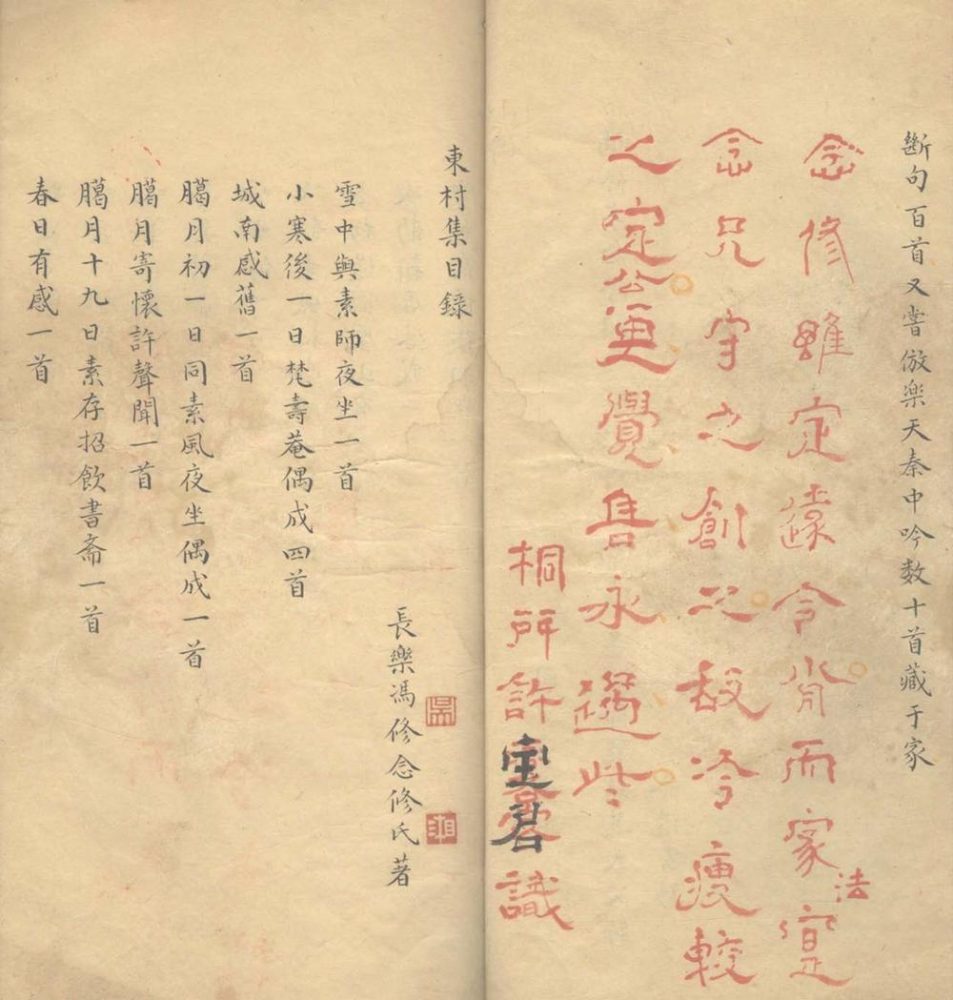 斷句百首又甞倣楽天秦中吟数十首藏于家
念修雖定遠令而家法寔
念兄守之創之故冷瘦較
之定公更覺雋永過些
桐許宝君識
東村集目錄
長樂馮修念修氏著
雪中與素師夜坐一首
小寒後一日梵壽菴偶成四首
城南感舊一首
臈月初一日同素風夜坐偶成一首
臈月寄懷許聲聞一首
臈月十九日素存招飲書斋一首
春日有感一首